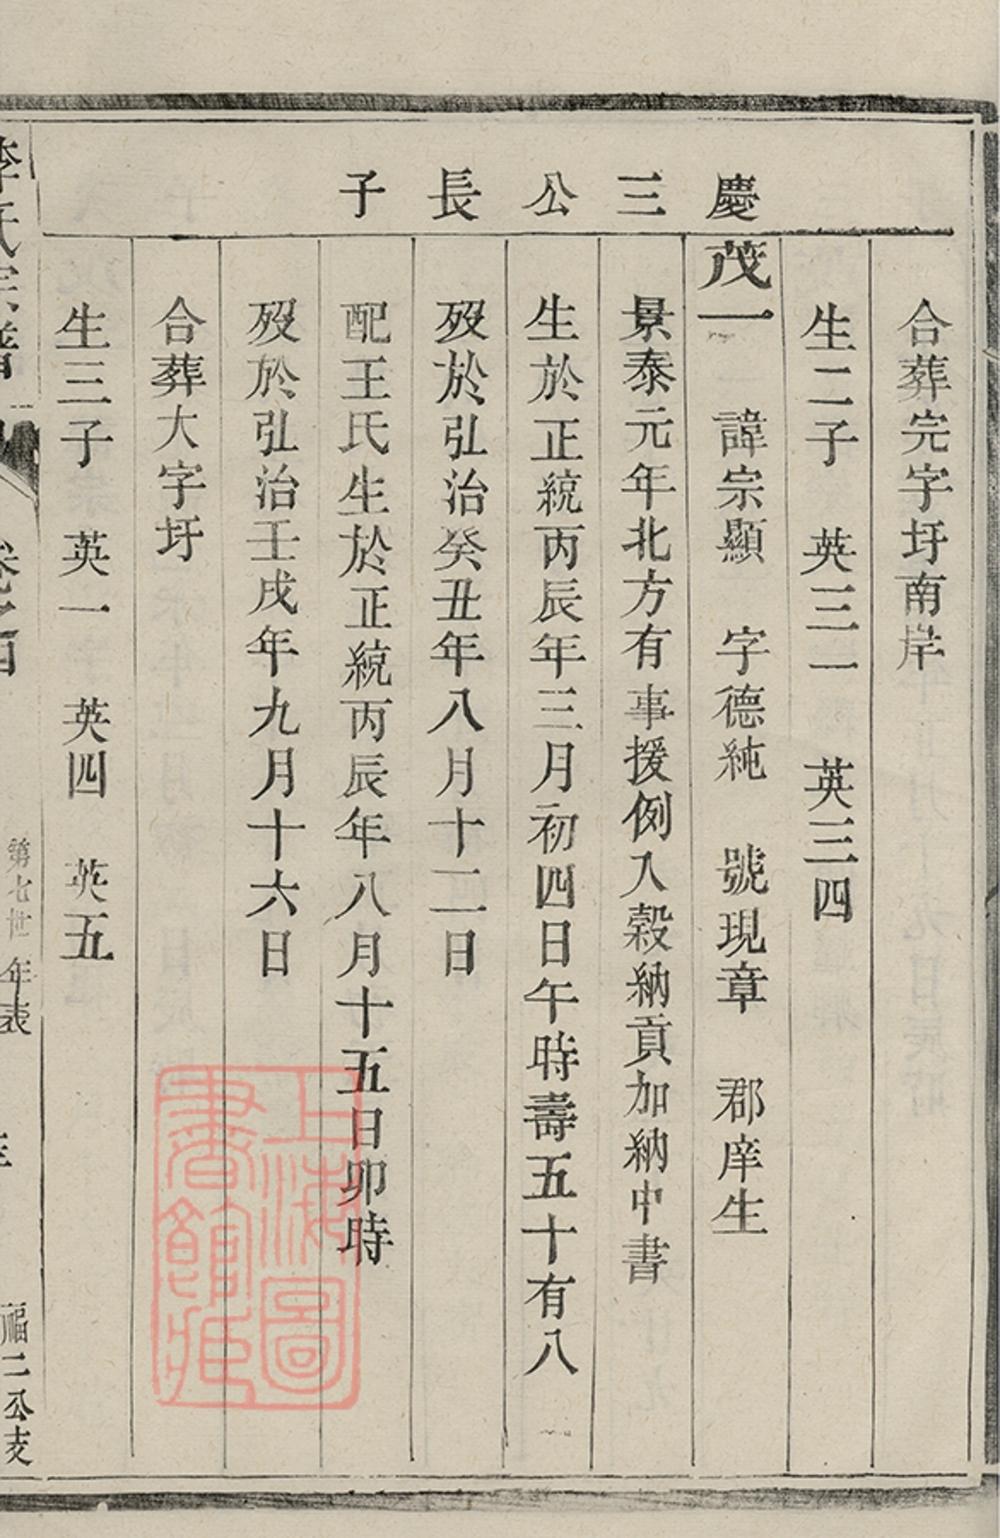 慶三公長子
合葬完字圩南岸
生二子 英三一 英三四
茂一 諱宗顯 字德純 號現章 郡庠生
景泰元年北方有事援例入穀納貢加納中書
生於正統丙辰年三月初四日午時壽五十有八
歿於弘治癸丑年八月十二日
配王氏生於正統丙辰年八月十五日卯時
歿於弘治壬戌年九月十六日
合葬大字圩
生三子 英一 英四 英五
李氏宗譜 卷之四 第七世年表 福二公支
上海圖書館藏